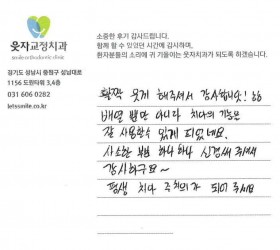 웃자교정치과
smile orthodontic clinic
경기도 성남시 중원구 성남대로
1156 도원타워 3,4층
031 606 0282
letssmile.co.kr
소중한 후기 감사드립니다.
함께 할 수 있었던 시간에 감사하며,
환자분들의 소리에 귀 기울이는 웃자치과가 되도록 하겠습니다.
활짝 웃게 해주셔서 감사합니다! bb
배열 뿐만 아니라 치아의 기능은
잘 사용할수 있게 되었네요.
사소한 부분 하나하나 신경써 주셔서
감사하구요~
평생 치아 주치의가 되어 주세요